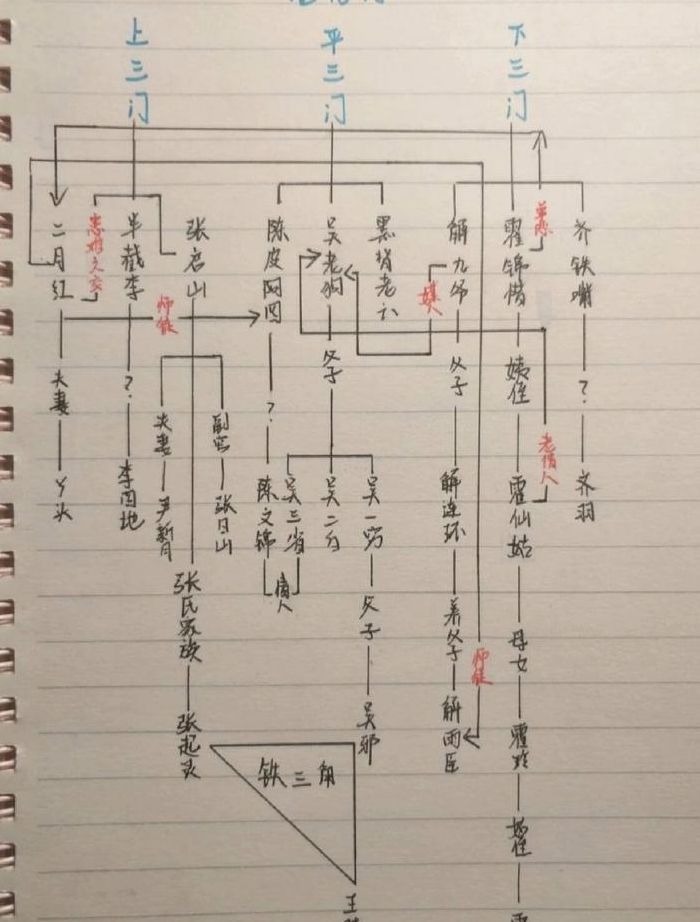 上三门
平三门
下三门
二月红
半截李
张启山
陈皮阿四
吴老狗
黑背老六
解九爷
霍锦惜
齐铁嘴
师徒
夫妻
丫头
?
李四地
夫妻
尹新月
副官
张日山
张氏家族
张起灵
?
陈文锦
情人
父子
吴三省
吴二白
吴一穷
父子
吴邪
父子
解连环
养父子
解雨臣
师徒
姨侄
霍仙姑
老情人
母女
霍玲
?
齐羽
铁三角
王